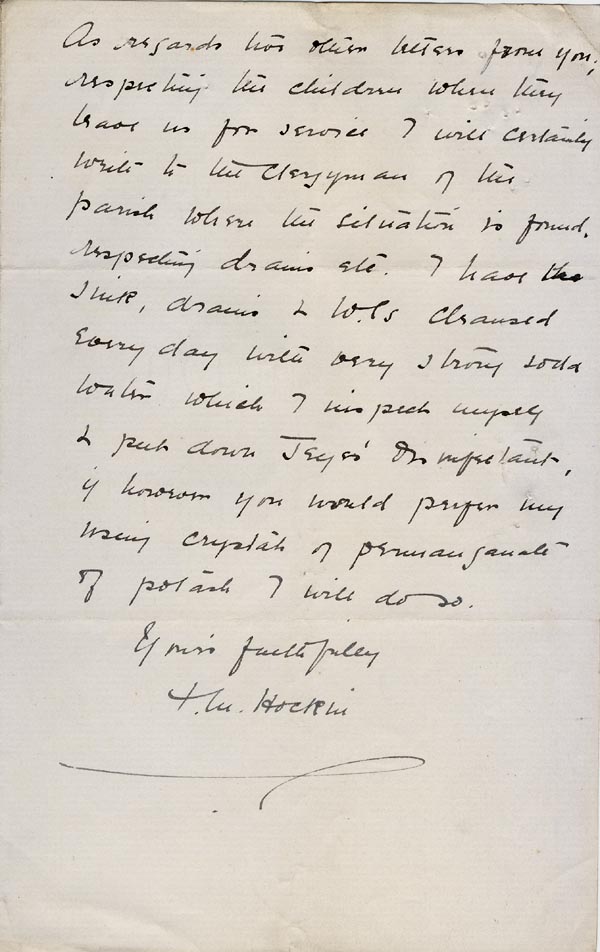 As regards two other letters from you,
respecting the children when they
leave us for service I will certainly
write to the Clergyman of the
parish where the situation is found.
respecting drains etc. I have the
sink, drains & W.Cs cleansed
every day with very strong soda
water which I inspect myself
& put down Jeyes' Disinfectant,
if however you would prefer my
using crystals of permanganate
of potash I will do so.
Yours faithfully
Hockin